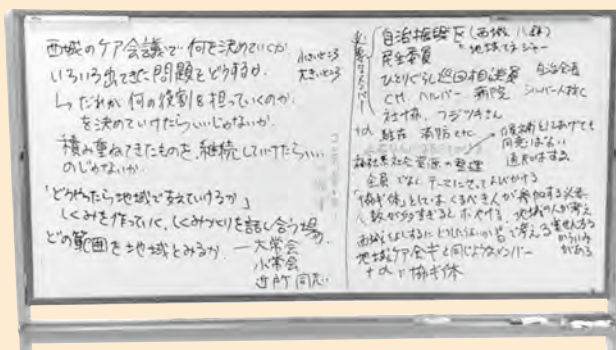 西城のケア会議で何を決めていくか
いろいろ出てきた問題をどうするか.
小さいところ
大きいところ
↳だれが何の役割を担っていくのか.
を決めていけたらいいじゃないか.
積み重ねてきたものを、継続していけたらいい
のじゃないか.
「どうやったら地域で支えていけるか」
しくみを作っていく、しくみづくりを話し合う場.
どの範囲を地域とみるか.
大常会
小常会
近所同志
必要なメンバー
自治振興区(西城、八鉾)
地域マネジャー
民生委員
ひとりぐらし巡回相談員
自治会長
CM、ヘルパー、病院、シルバー人材C
社協、フジツキさん
+α 駐在 消防etc
候補としてあげても
同意はない
通知はする
福祉関係社会資源の整理
全員でなく、テーマによってよびかける
「協ギ体」としては、くるべき人が参加する必要
人数が多すぎるとボヤける.
西城をよくするにはどうしたらいいか皆で考える
地域の人が考え
地域ケア会ギと同じようなメンバー
+αで協ギ体
がある